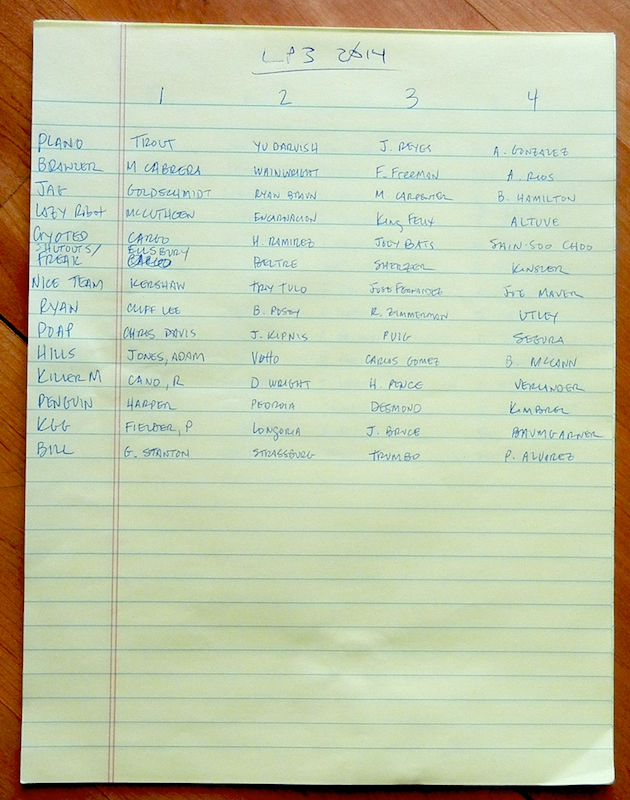 LP3 2014
1 2 3 4
PLANO TROUT YU DARVISH J. REYES A. GONZALEZ
BRAWLER M CABRERA WAINWRIGHT F. FREEMAN A. RIOS
JAG GOLDSCHMIDT RYAN BRAUN M. CARPENTER B. HAMILTON
LAZY RIBOT MCCUTHCEN ENCARNACION KING FELIX ALTUVE
COYOTED CARGO H. RAMIREZ JOEY BATS SHIN-SOO CHOO
SHUTOUTS/ FREAK ELLSBURY BELTRE SHERZER KINSLER
NICE TEAM KERSHAW TRY TULO JOSE FERNANDEZ JOE MAUER
RYAN CLIFF LEE B. POSEY R. ZIMMERMAN UTLEY
POAP CHRIS DAVIS J. KIPNIS PUIG SEGURA
HILLS JONES, ADAM VOTTO CARLOS GOMEZ B. MCCANN
KILLER M CANO, R D WRIGHT H. PENCE VERLANDER
PENGUIN HARPER PEDROIA DESMOND KIMBREL
KGG FIELDER, P LONGORIA J. BRUCE BAUMGARNER
BILL G. STANTON STRASSBURG TRUMBO P. ALVAREZ